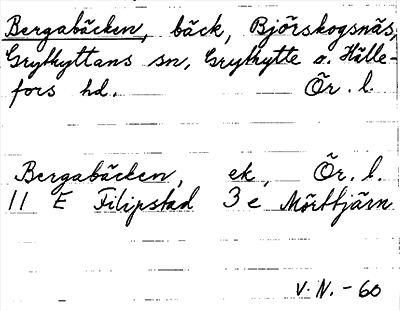 Bergabäcken, bäck, Björskogsnäs,
Grythyttans sn, Grythytte o. Hälle-
fors hd. Ör. l.
Bergabäcken, ek, Ör. l.
11 E Filipstad 3e Mörttjärn
V. N. - 60